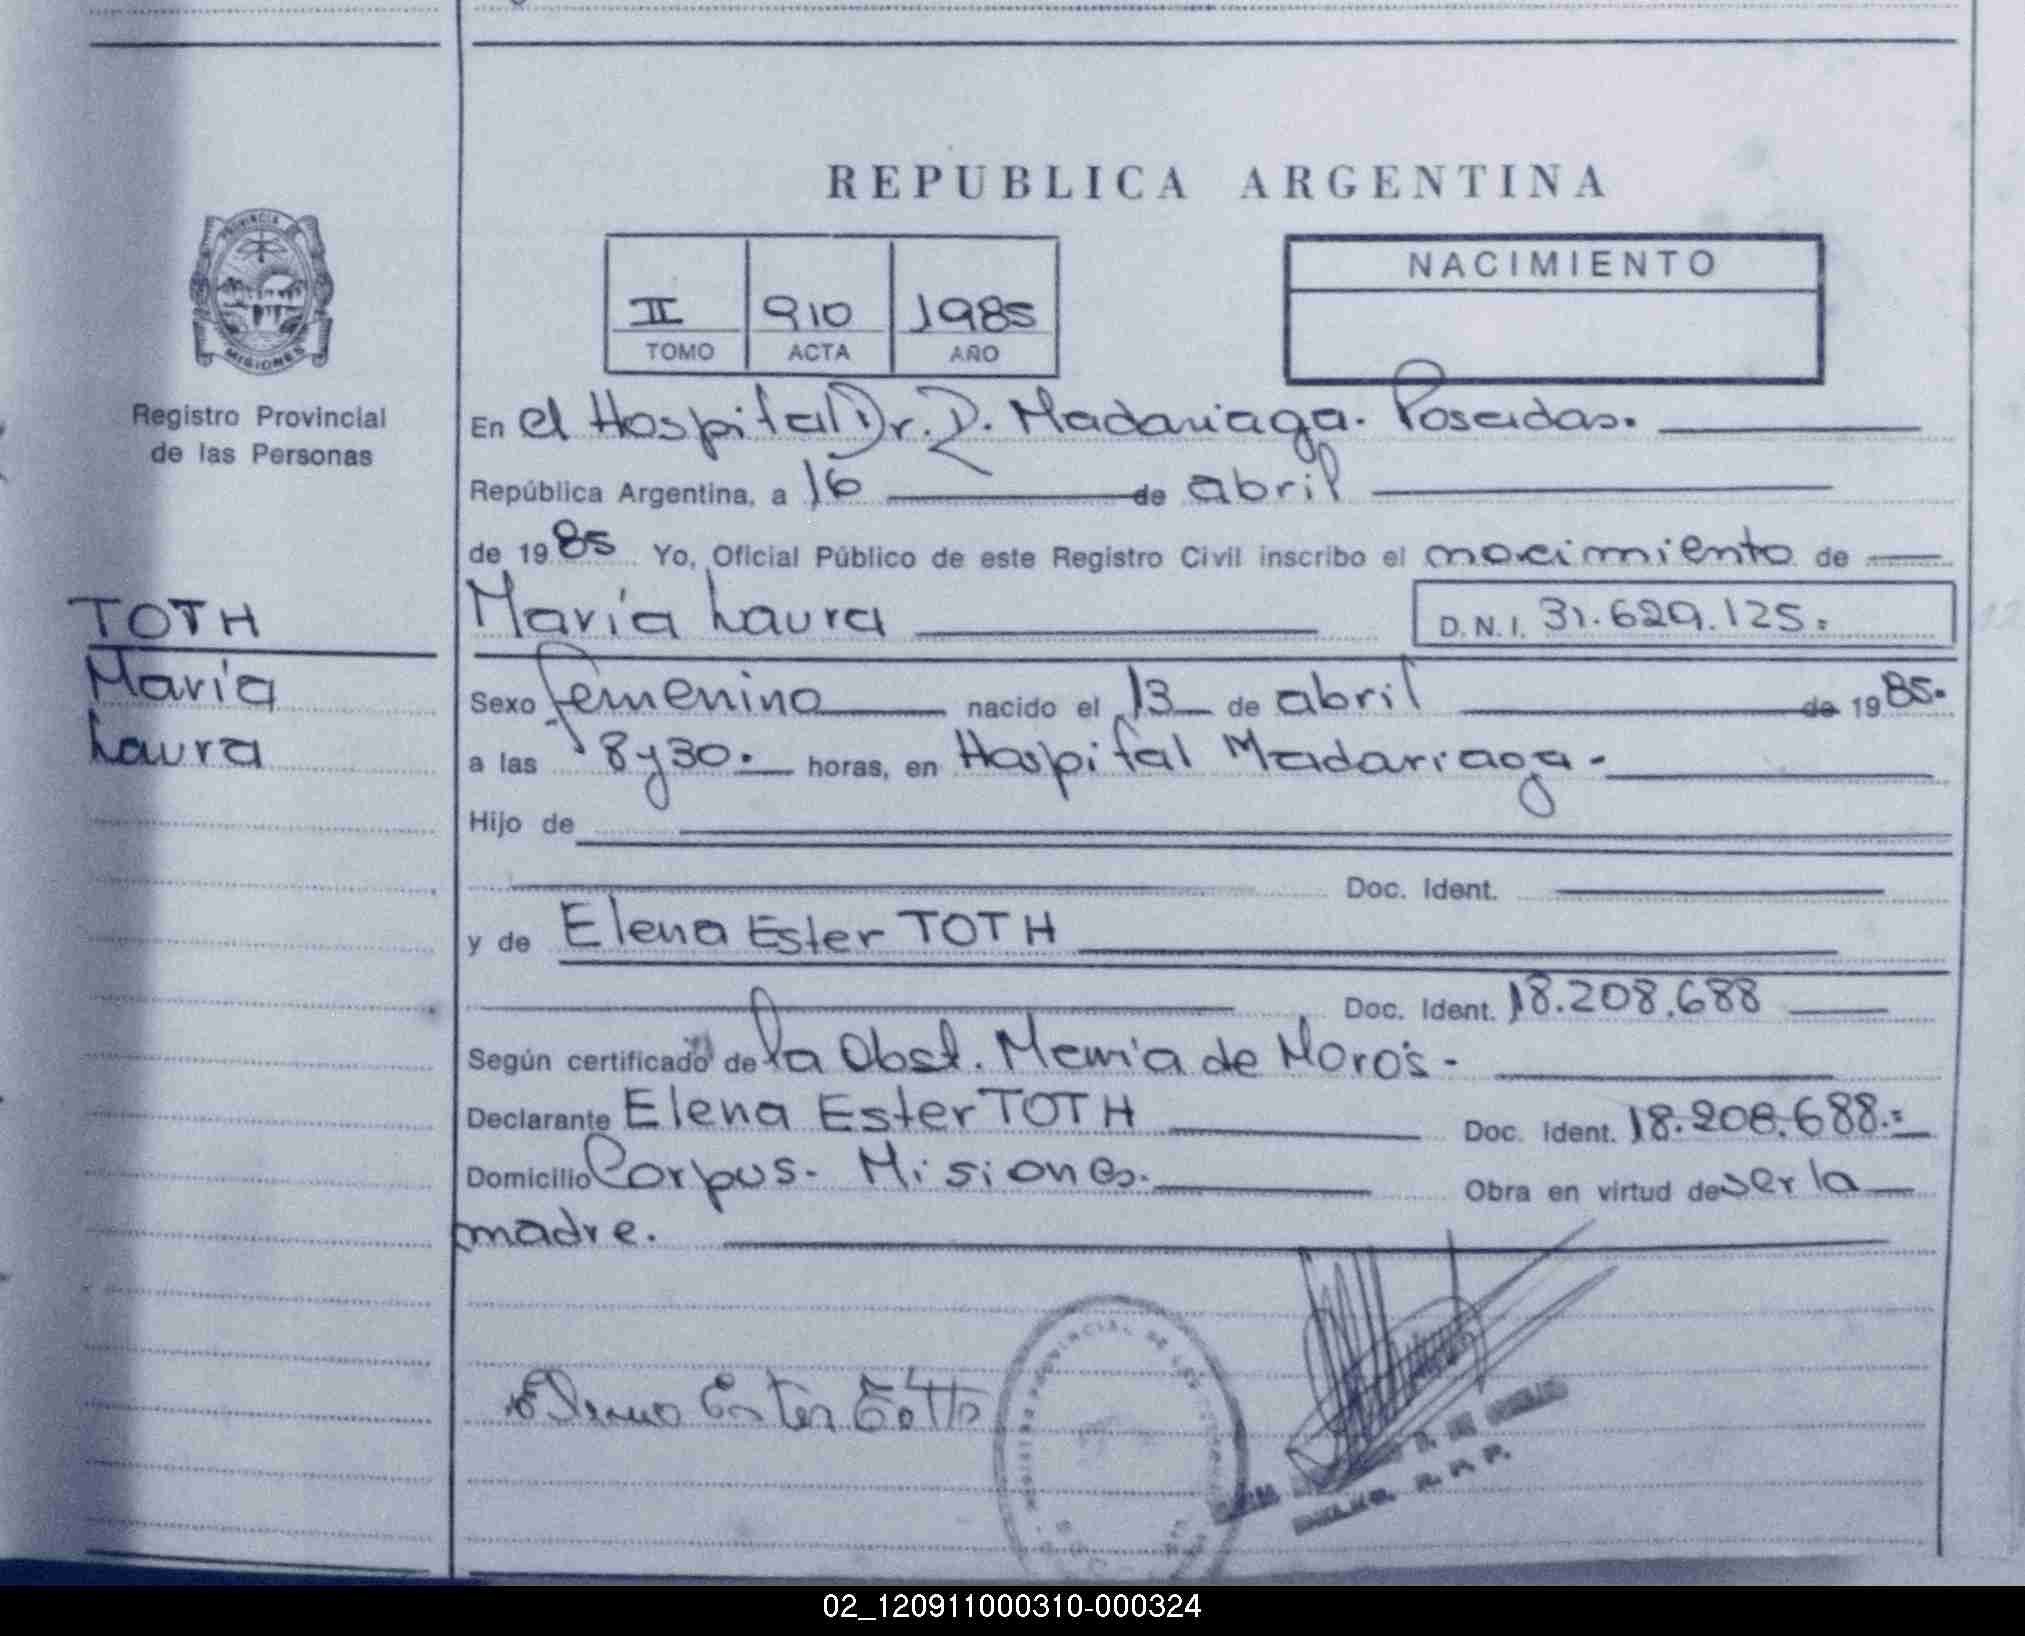 REPUBLICA ARGENTINA
PROVINCIA DE
MISIONES
Registro Provincial
de las Personas
II 910 1985
TOMO ACTA AÑO
NACIMIENTO
En el Hospital Dr. R. Madariaga. Posadas.
República Argentina, a 16 de abril
de 1985 Yo, Oficial Público de este Registro Civil inscribo el nacimiento de
TOTH
María
Laura
María Laura
D.N.I. 31.629.125.=
Sexo femenino nacido el 13 de abril de 1985.
a las 8y30. horas, en Hospital Madariaga.-
Hijo de
Doc. Ident.
y de Elena Ester TOTH
Doc. Ident. 18.208.688
Según certificado de la Obst. de
Declarante Elena Ester TOTH Doc. Ident. 18.208.688.=
Domicilio Corpus. Misiones. Obra en virtud de ser la
madre.
Ester
PROVINCIAL DE LAS
R. P. P.
02_120911000310-000324